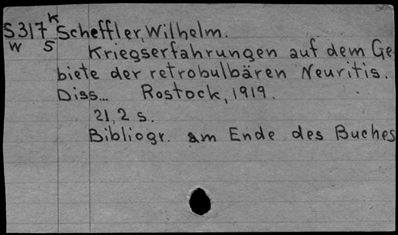 S317 K Scheffler, Wilhelm.
W S Kriegserfahrungen auf dem Ge-
biete der retrobulbären Neuritis.
Diss... Rostock, 1919.
21, 2 s.
Bibliogr. am Ende des Buches